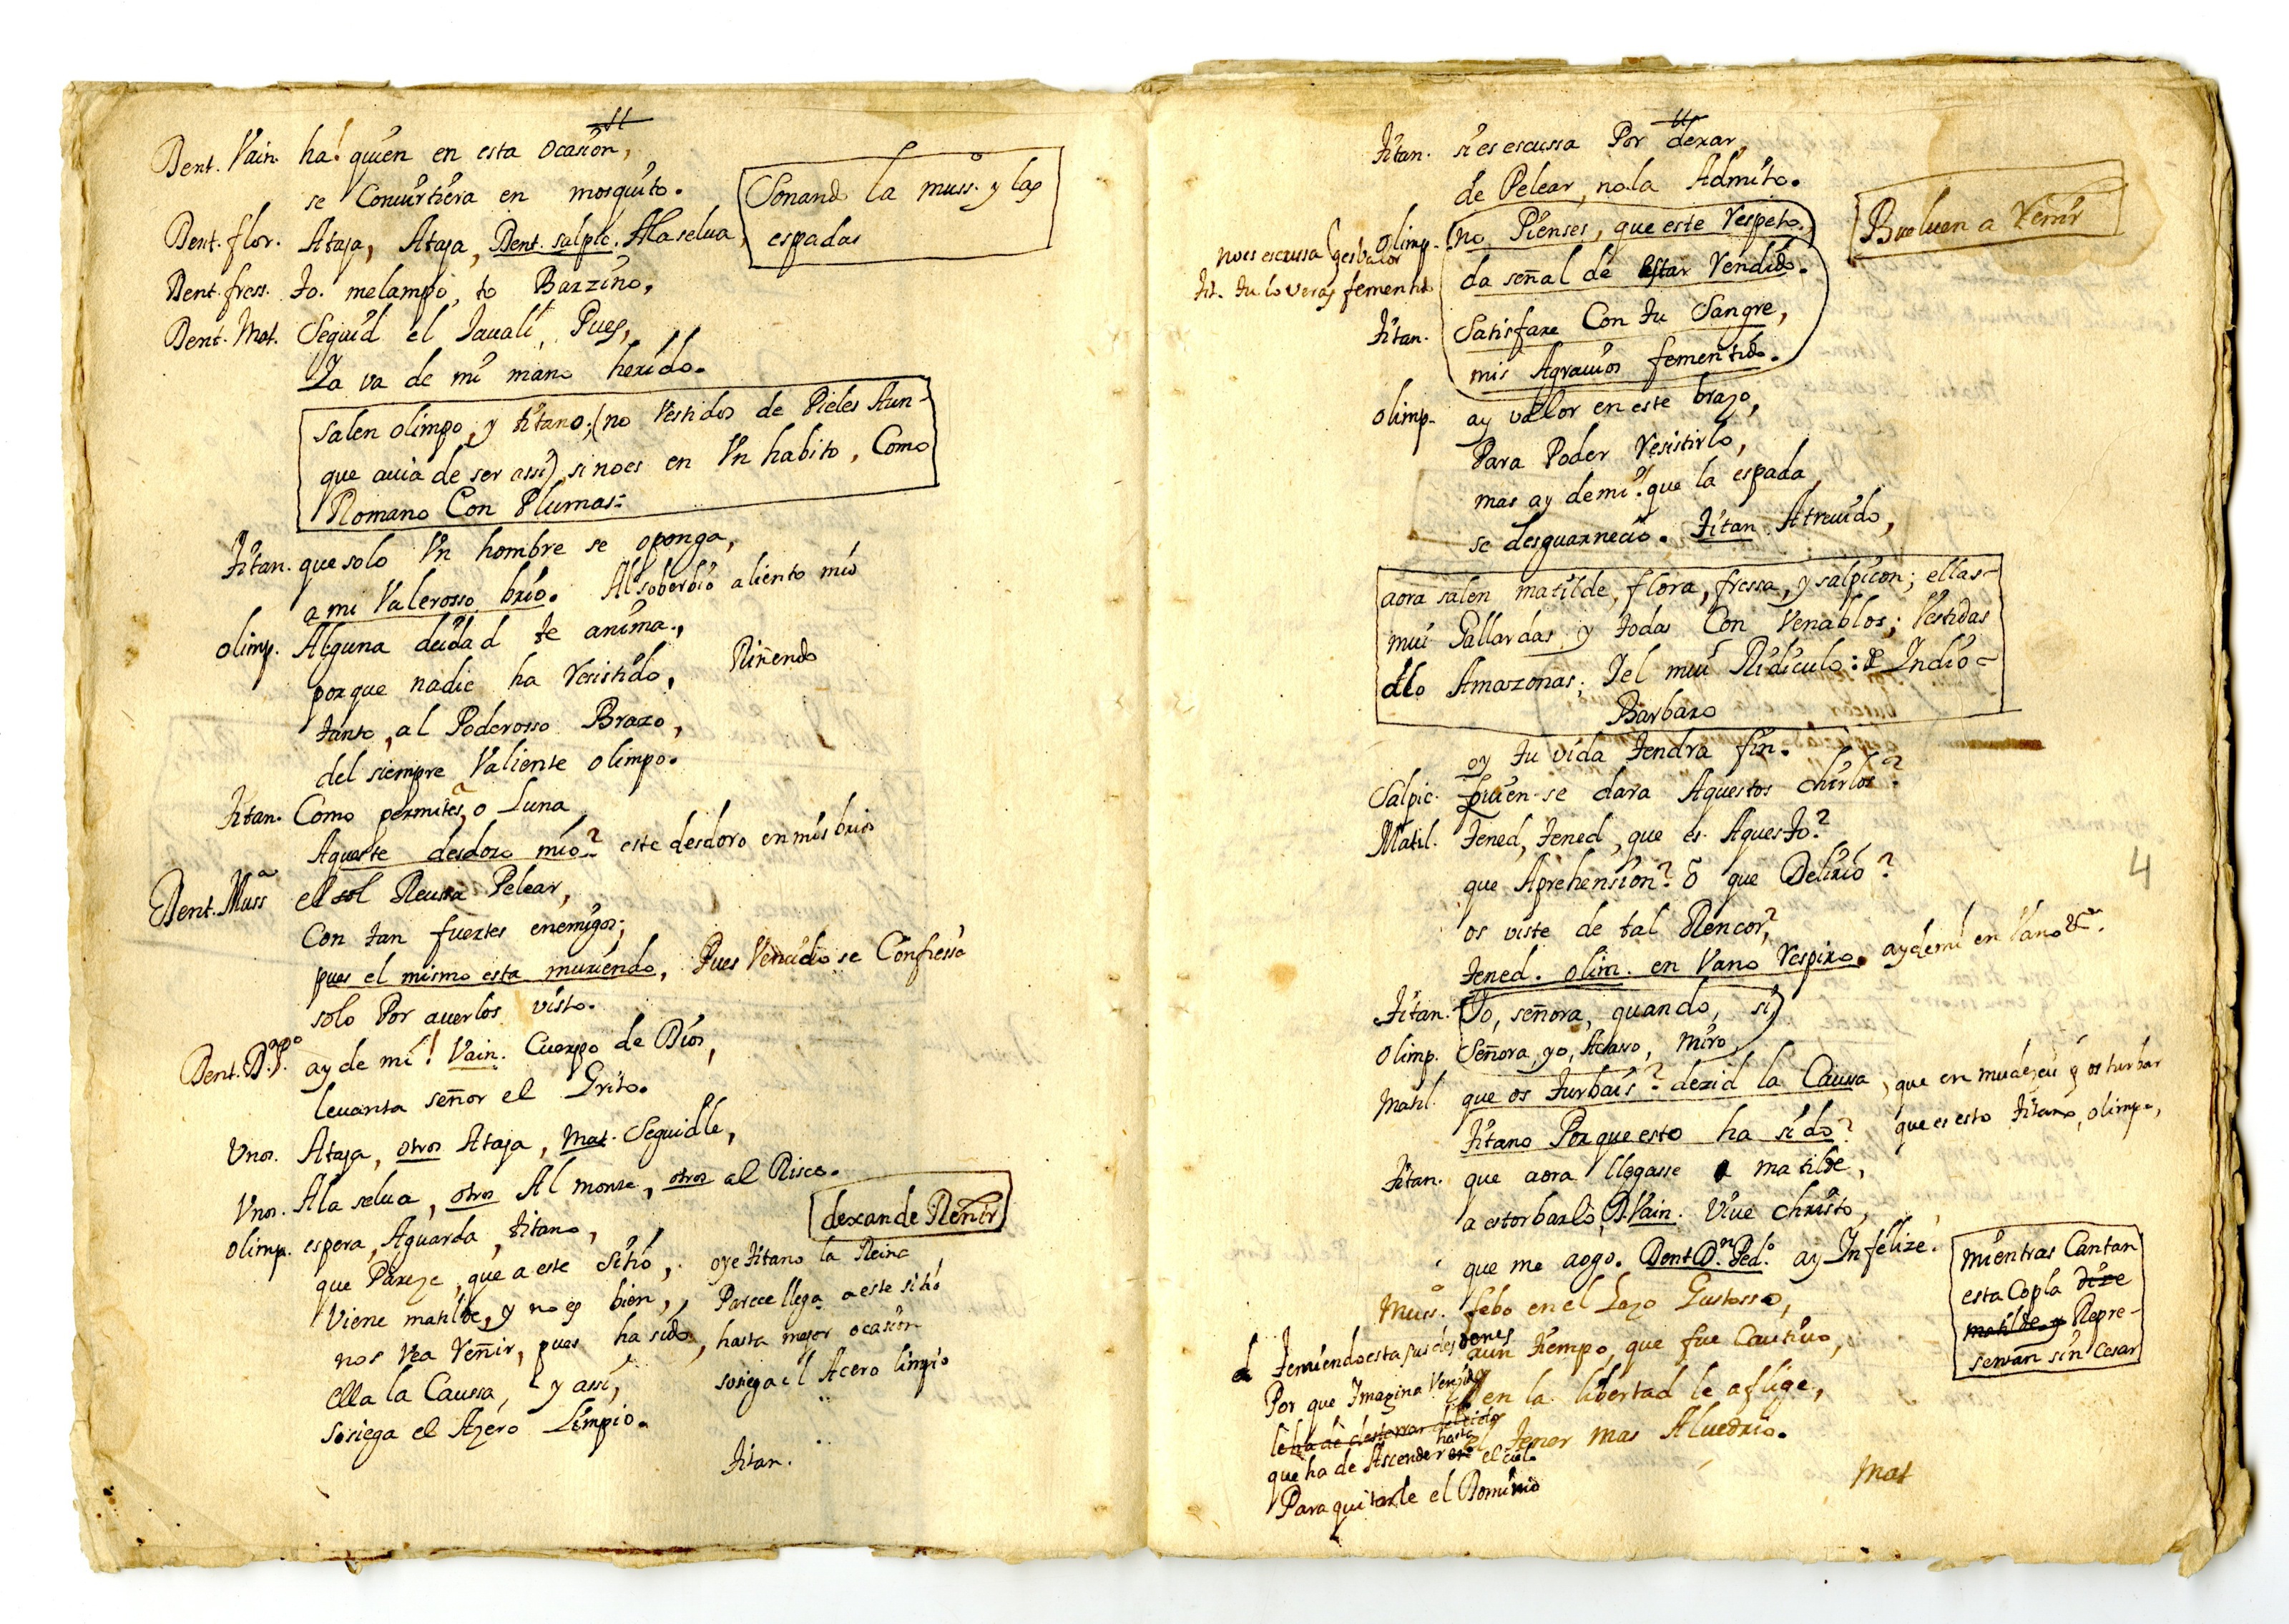 Dent. Vain. ha! quien en esta ocasion,
se Comurtiera en mosquito.
Sonando la muss. y las
espadas
Dent. flor. Ataja, Ataja, Dent. salpic. Ala selua,
Dent. fress. To. melampo, to Barzino,
Dent. Mat. Seguid el Jauali, Pues,
Ya va de mi mano herido.
Salen olimpo, y titano; (no Vestidos de Pieles Aun-
que auia de ser assi) si no es en Vn habito, Como
Romano Con Plumas:
Titan. que solo Vn hombre se oponga,
a mi Valerosso brio. Al soberbio aliento mio
olimp. Alguna deidad te anima,
porque nadie ha Resistido, Riñendo
tanto, al Poderosso Brazo,
del siempre Valiente olimpo.
Titan. Como permites, o Luna,
Aqueste desdoro mio? este desdoro en mis brios
Dent. Mussª el sol Reussa Pelear,
Con tan fuertes enemigos;
pues el mismo esta muriendo, Pues Vencido se Confiessa
solo Por auerlos visto.
Dent. Dⁿ Pº ay de mi! Vain. Cuerpo de Dios,
leuanta señor el Grito.
Vnos. Ataja, otros Ataja, Mat. Seguidle,
Vnos. A la selua, otros Al monte, otros al Risco.
dexan de Reñir
olimp. espera, Aguarda, titano,
que Pareze, que a este Sitio, oye titano la Reina
Viene matilde, y no es bien, Parece llega a este sitio
nos Vea Reñir, pues ha sido, hasta mejor ocasion
ella la Caussa, y assi, sosiega el Acero limpio
sosiega el Azero Limpio.
Titan.
Titan. si es escussa Por dexar,
de Pelear, no la Admito.
Bueluen a Renir
olimp. no Pienses, que este respeto.
no es escussa q es valor
da señal de estar Vendido.
tit. tu lo veras fementido
Titan. Satisfaxe Con tu Sangre,
mis Agrauios fementido.
olimp. ay valor en este brazo,
Para Poder Resistirlo,
mas ay de mi! que la espada
se desguarnecio. Titan. Atreuido,
aora salen matilde, flora, fressa, y salpicon; ellas-
mui Gallardas, y todas Con Venablos; Vestidas
de Amazonas; Y el mui Ridiculo: de Indio-
Barbaro
oy tu vida tendra fin.
Salpic. quien se dara Aquestos chirlos?
Matil. tened, tened, que es Aquesto?
que Aprehension? o que Delirio?
os viste de tal Rencor?
4
tened. olim. en Vano Respiro. ay de mi en Vano &ª.
Titan. Yo, señora, quando, si,
olimp. Señora, yo, Acasso, miro,
Matil. que os turbais? dezid la Caussa, que en mudezeis y os turbar
titano Porque esto ha sido? que es esto titano, olimpo,
Titan. que aora llegasse a matilde,
a estorbarlo, D. Vain. Viue christo,
que me aogo. Dent Dⁿ. Pedº. ay Infelize.
Muss. febo en el Lazo Gustosso,
aun tiempo, que fue Cautiuo,
en la libertad le aflige,
el tener mas Aluedrio.
mientras Cantan
esta Copla dize
matilde y Repre-
sentan sin cesar
Temiendo esta sus desdenes
Por que Imagina Venzido
le ha de desterrar del cielo
que ha de Ascender hasta el ciel.
Para quitarle el Dominio
Mat